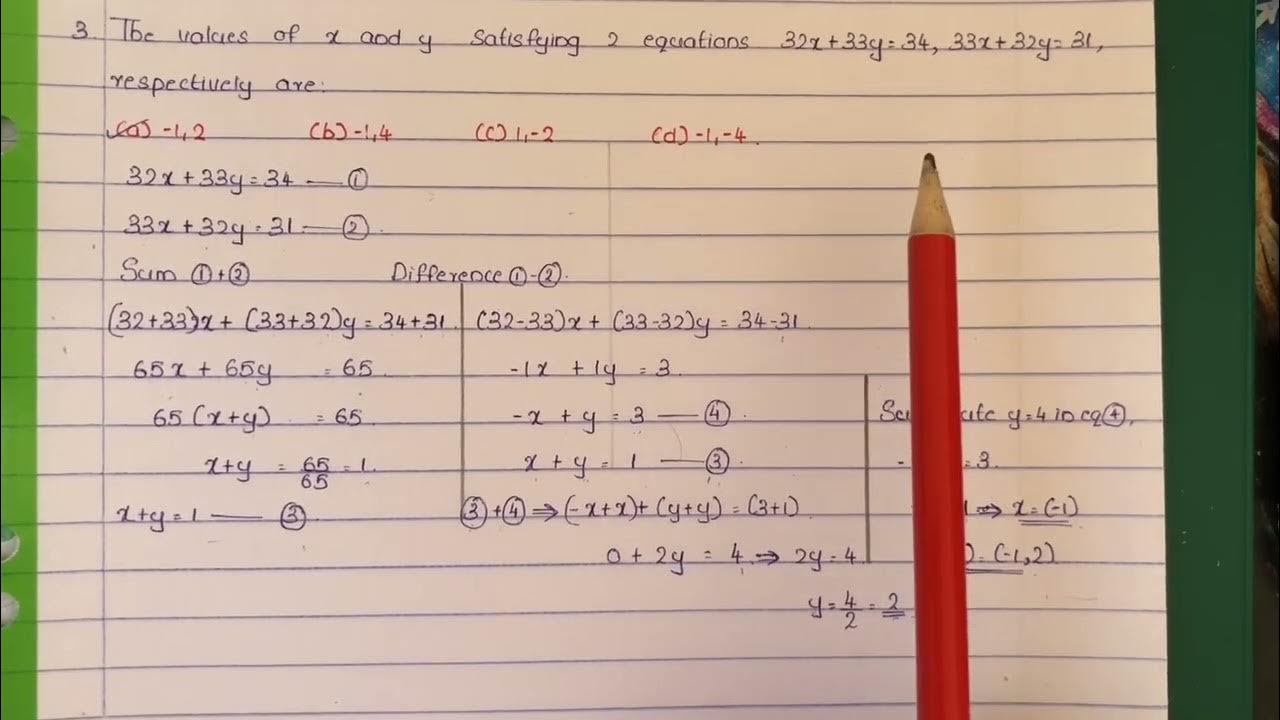 3. The values of x and y satisfying 2 equations 32x+33y=34, 33x+32y=31,
respectively are:
(a) -1,2 (b) -1,4 (c) 1,-2 (d) -1,-4.
32x+33y=34 — ①
33x+32y=31 — ②.
Sum ①+② Difference ①-②.
(32+33)x + (33+32)y = 34+31
65x + 65y = 65
65(x+y) = 65
x+y = 65/65 = 1.
x+y=1 — ③
(32-33)x + (33-32)y = 34-31
-1x + 1y = 3.
-x + y = 3 — ④.
x + y = 1 — ③.
③+④ ⇒ (-x+x)+(y+y) = (3+1)
0 + 2y = 4. ⇒ 2y=4
y = 4/2 = 2
y=4 in eq④,
- =3.
1 ⇒ x=(-1)
)=(-1,2)